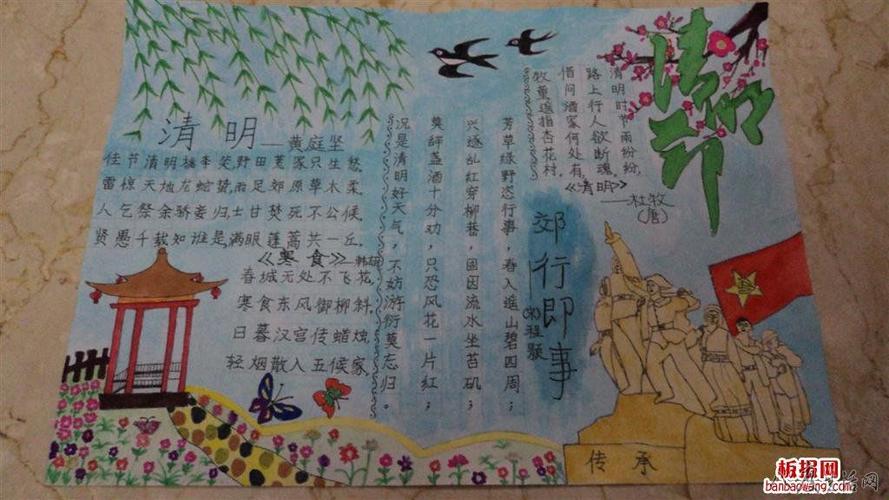 清明节
清明时节雨纷纷，
路上行人欲断魂，
借问酒家何处有，
牧童遥指杏花村，
《清明》
—杜牧
(唐)
郊行即事
(宋)程颢
芳草绿野恣行事，春入遥山碧四周；
兴逐乱红穿柳巷，困因流水坐苔矶；
莫辞盏酒十分劝，只恐风花一片红；
况是清明好天气，不妨游衍莫忘归。
清明—黄庭坚
佳节清明桃李笑，野田荒冢只生愁。
雷惊天地龙蛇蛰，雨足郊原草木柔。
人乞祭余骄妾妇，士甘焚死不公侯。
贤愚千载知谁是，满眼蓬蒿共一丘。
《寒食》—韩翃
春城无处不飞花，
寒食东风御柳斜，
日暮汉宫传蜡烛，
轻烟散入五侯家。
八一
传承
板报网
banbaowang.com